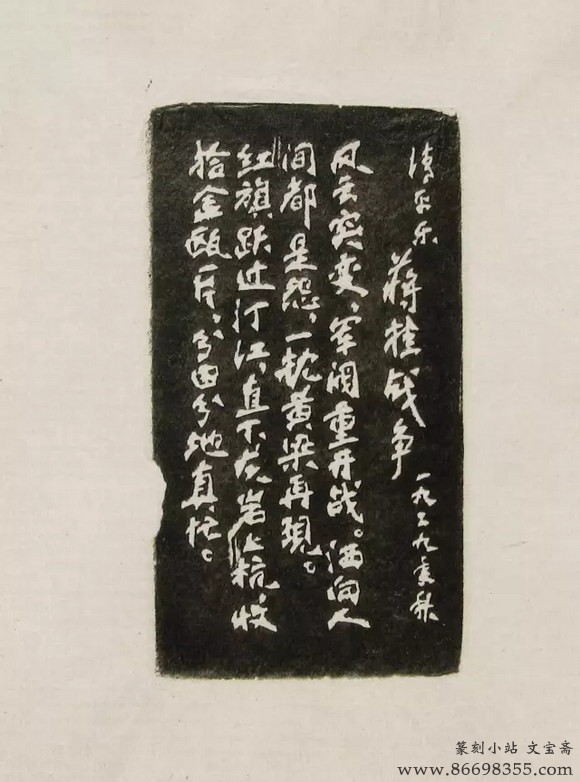 清平乐 蒋桂战争 一九二九年秋
风云突变,军阀重开战。洒向人
间都是怨,一枕黄梁再現。
红旗跃过汀江,直下龙岩上杭,收
拾金瓯一片,分田分地真忙。
篆刻小站 文宝斋
www.86698355.com